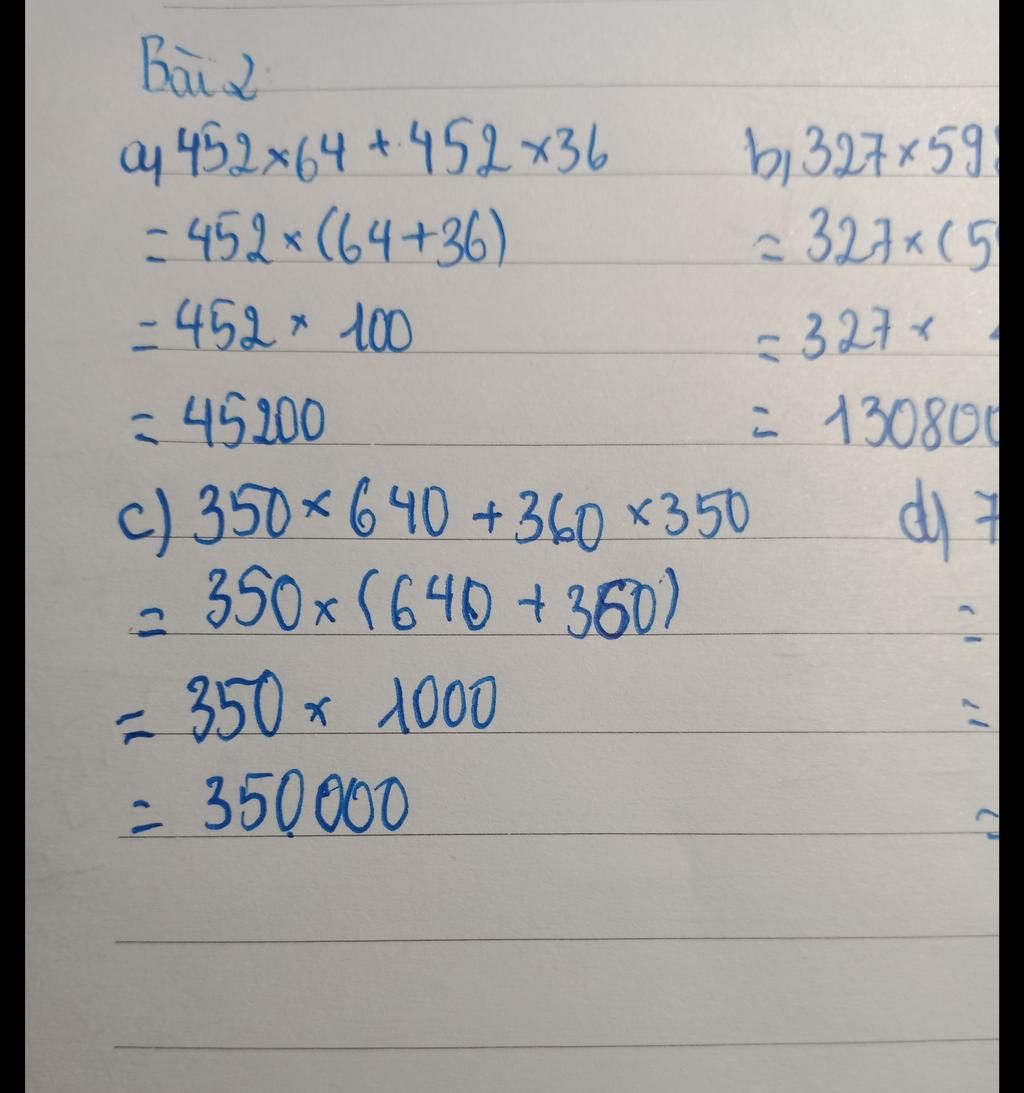 Bài 2:
a) 452 × 64 + 452 × 36
= 452 × (64 + 36)
= 452 × 100
= 45200
b) 327 × 59
= 327 × (5
= 327 ×
= 130800
c) 350 × 640 + 360 × 350
= 350 × (640 + 360)
= 350 × 1000
= 350000
d) 7
=
=
=